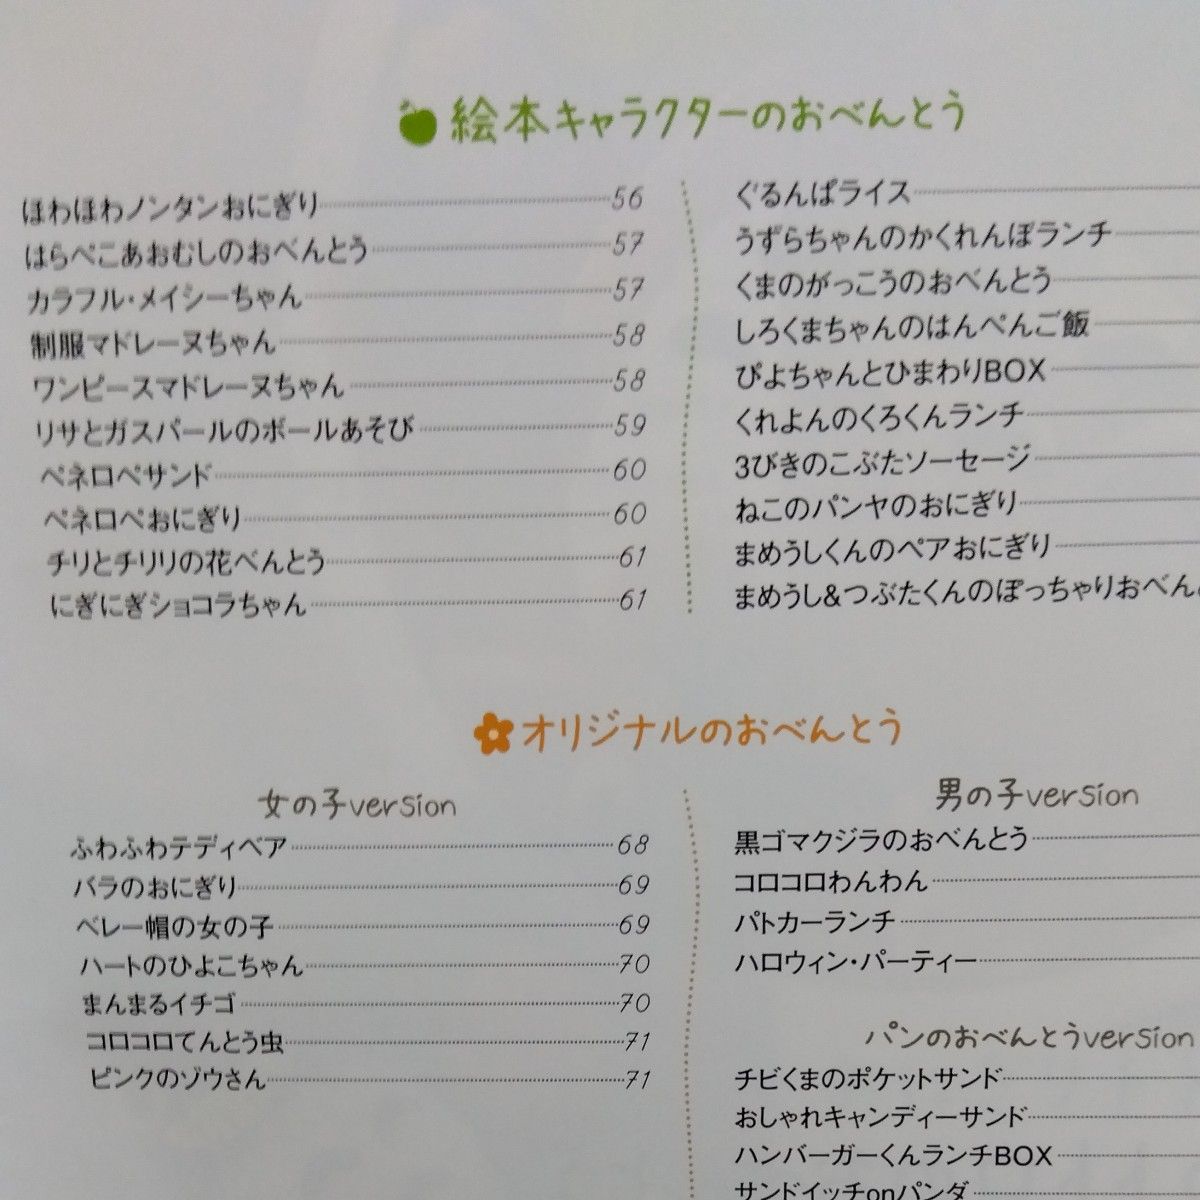 絵本キャラクターのおべんとう
ほわほわノンタンおにぎり 56
はらぺこあおむしのおべんとう 57
カラフル・メイシーちゃん 57
制服マドレーヌちゃん 58
ワンピースマドレーヌちゃん 58
リサとガスパールのボールあそび 59
ペネロペサンド 60
ペネロペおにぎり 60
チリとチリリの花べんとう 61
にぎにぎショコラちゃん 61
ぐるんぱライス
うずらちゃんのかくれんぼランチ
くまのがっこうのおべんとう
しろくまちゃんのはんぺんご飯
ぴよちゃんとひまわりBOX
くれよんのくろくんランチ
3びきのこぶたソーセージ
ねこのパンヤのおにぎり
まめうしくんのペアおにぎり
まめうし&つぶたくんのぽっちゃりおべん
オリジナルのおべんとう
女の子version
ふわふわテディベア 68
バラのおにぎり 69
ベレー帽の女の子 69
ハートのひよこちゃん 70
まんまるイチゴ 70
コロコロてんとう虫 71
ピンクのゾウさん 71
男の子version
黒ゴマクジラのおべんとう
コロコロわんわん
パトカーランチ
ハロウィン・パーティー
パンのおべんとうversion
チビくまのポケットサンド
おしゃれキャンディーサンド
ハンバーガーくんランチBOX
サンドイッチonパンダ